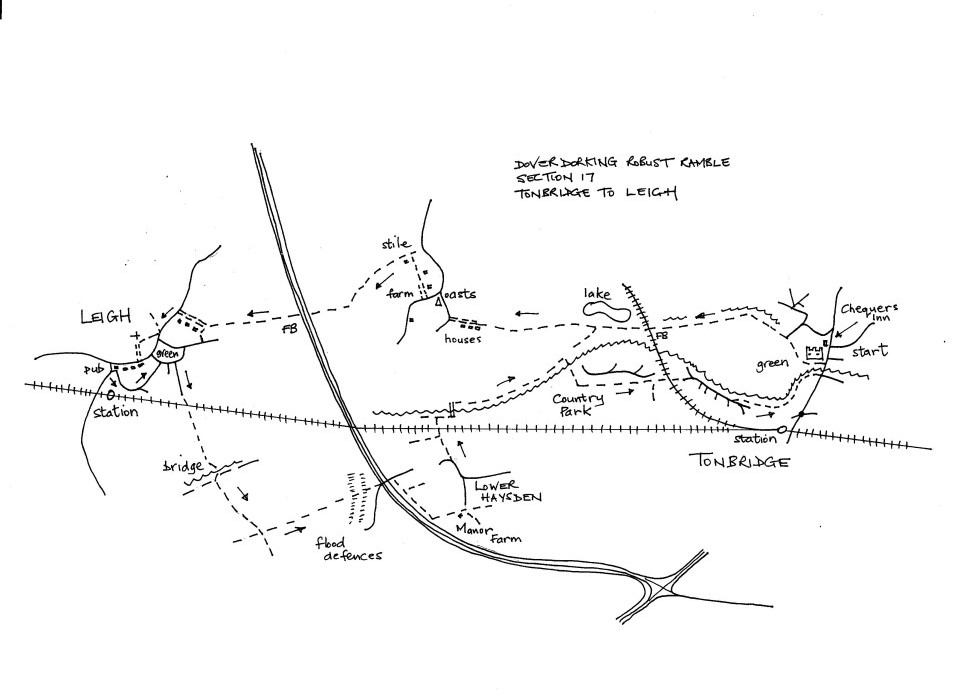 DOVER DORKING ROBUST RAMBLE
SECTION 17
TONBRIDGE TO LEIGH
stile
farm
oasts
houses
lake
FB
FB
Chequers
Inn
start
green
LEIGH
green
pub
station
Country
Park
station
TONBRIDGE
bridge
LOWER
HAYSDEN
Manor
Farm
flood
defences